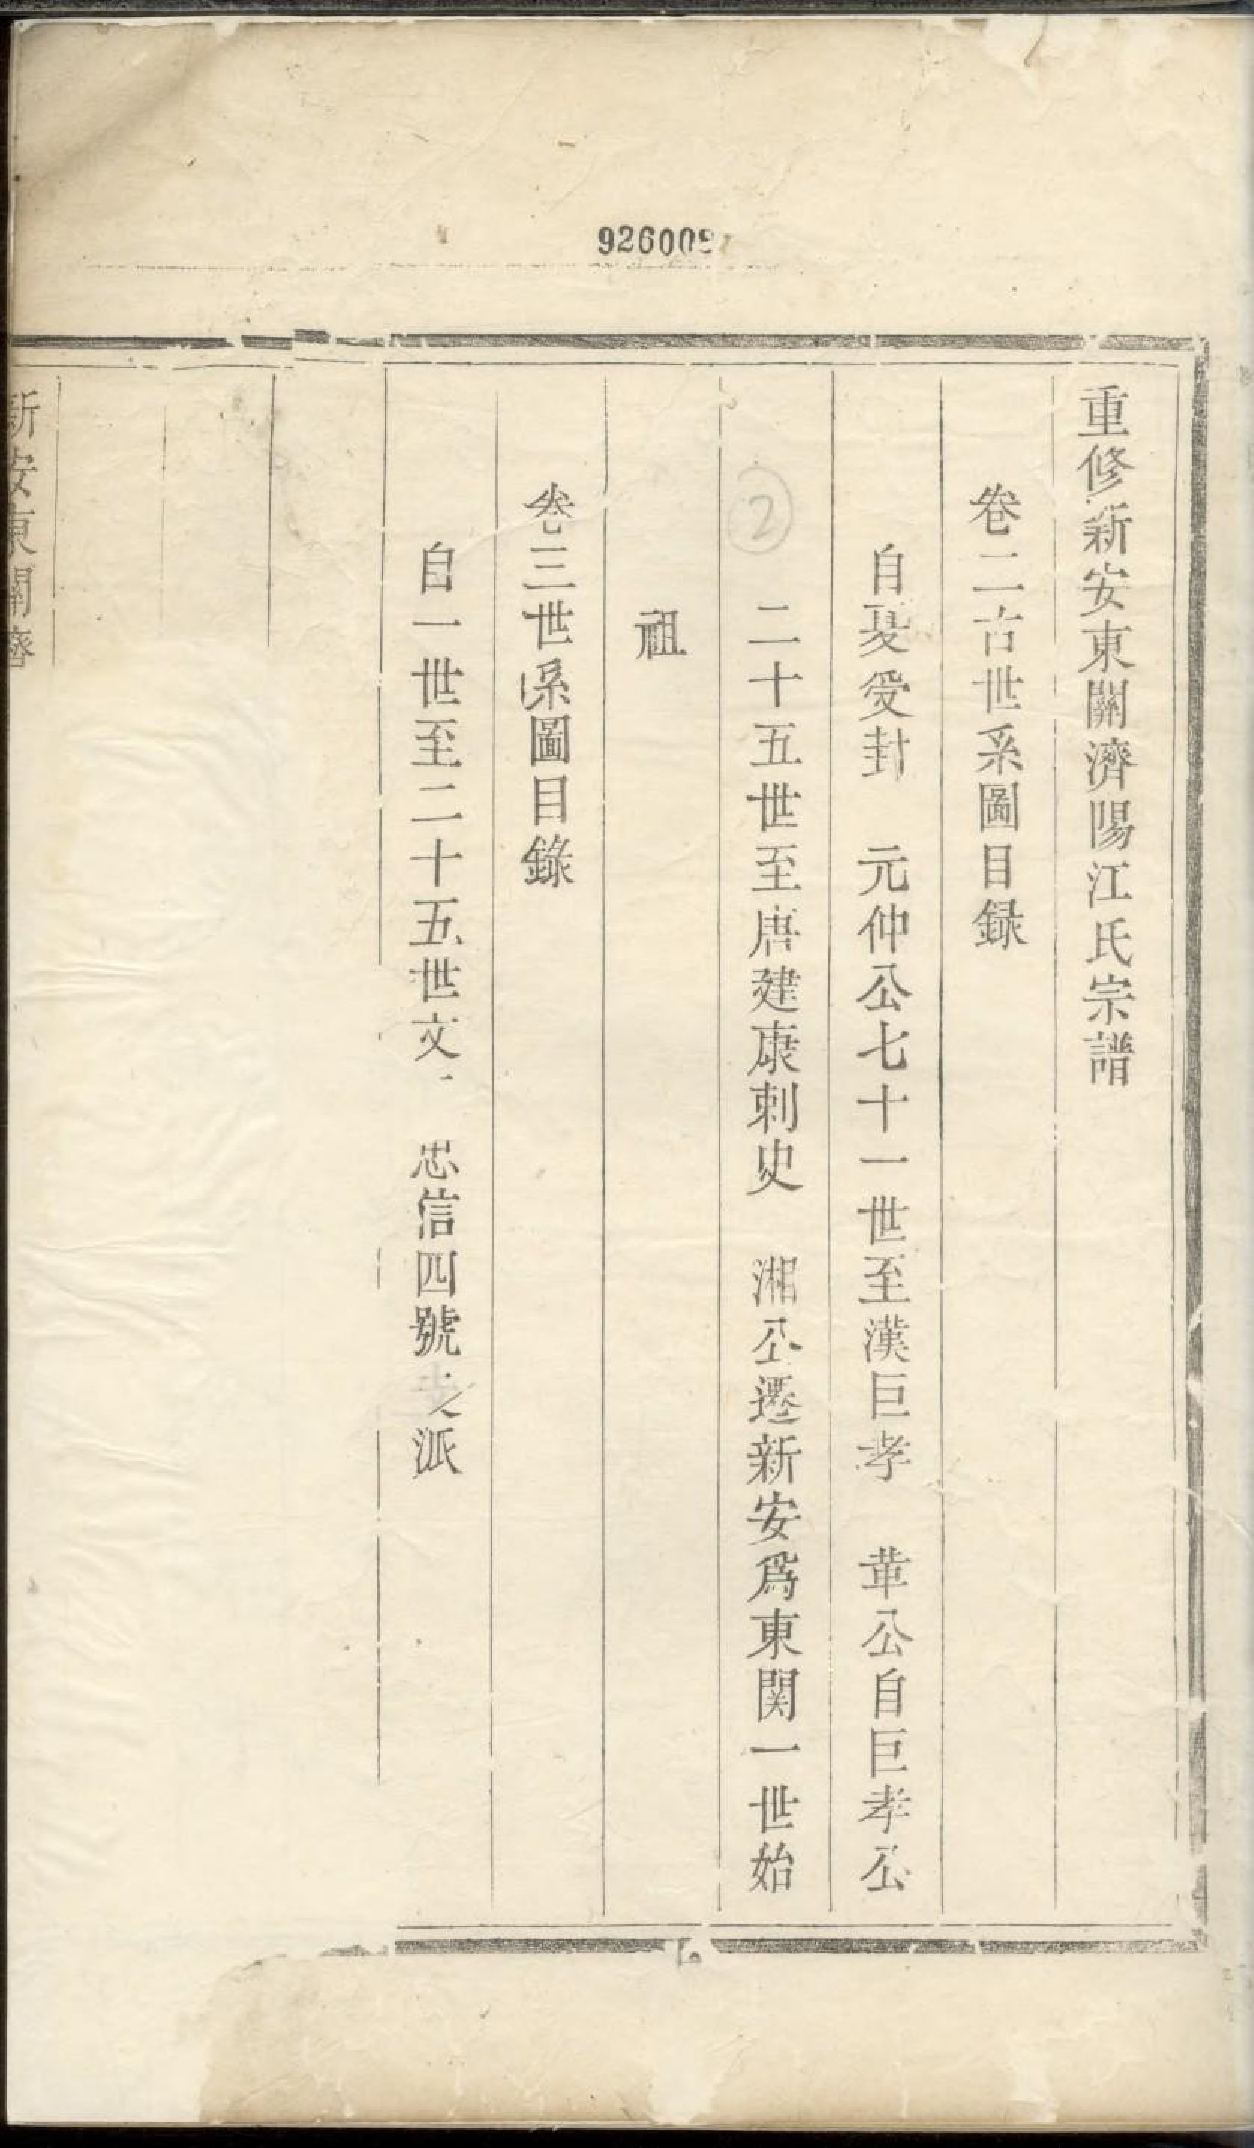 926009
重修新安東關濟陽江氏宗譜
卷二古世系圖目録
自夏受封　元仲公七十一世至漢巨孝　革公自巨孝公
二十五世至唐建康刺史　湘公遷新安爲東関一世始
②
祖
卷三世系圖目錄
自一世至二十五世文　忠信四號之派
新安東關濟